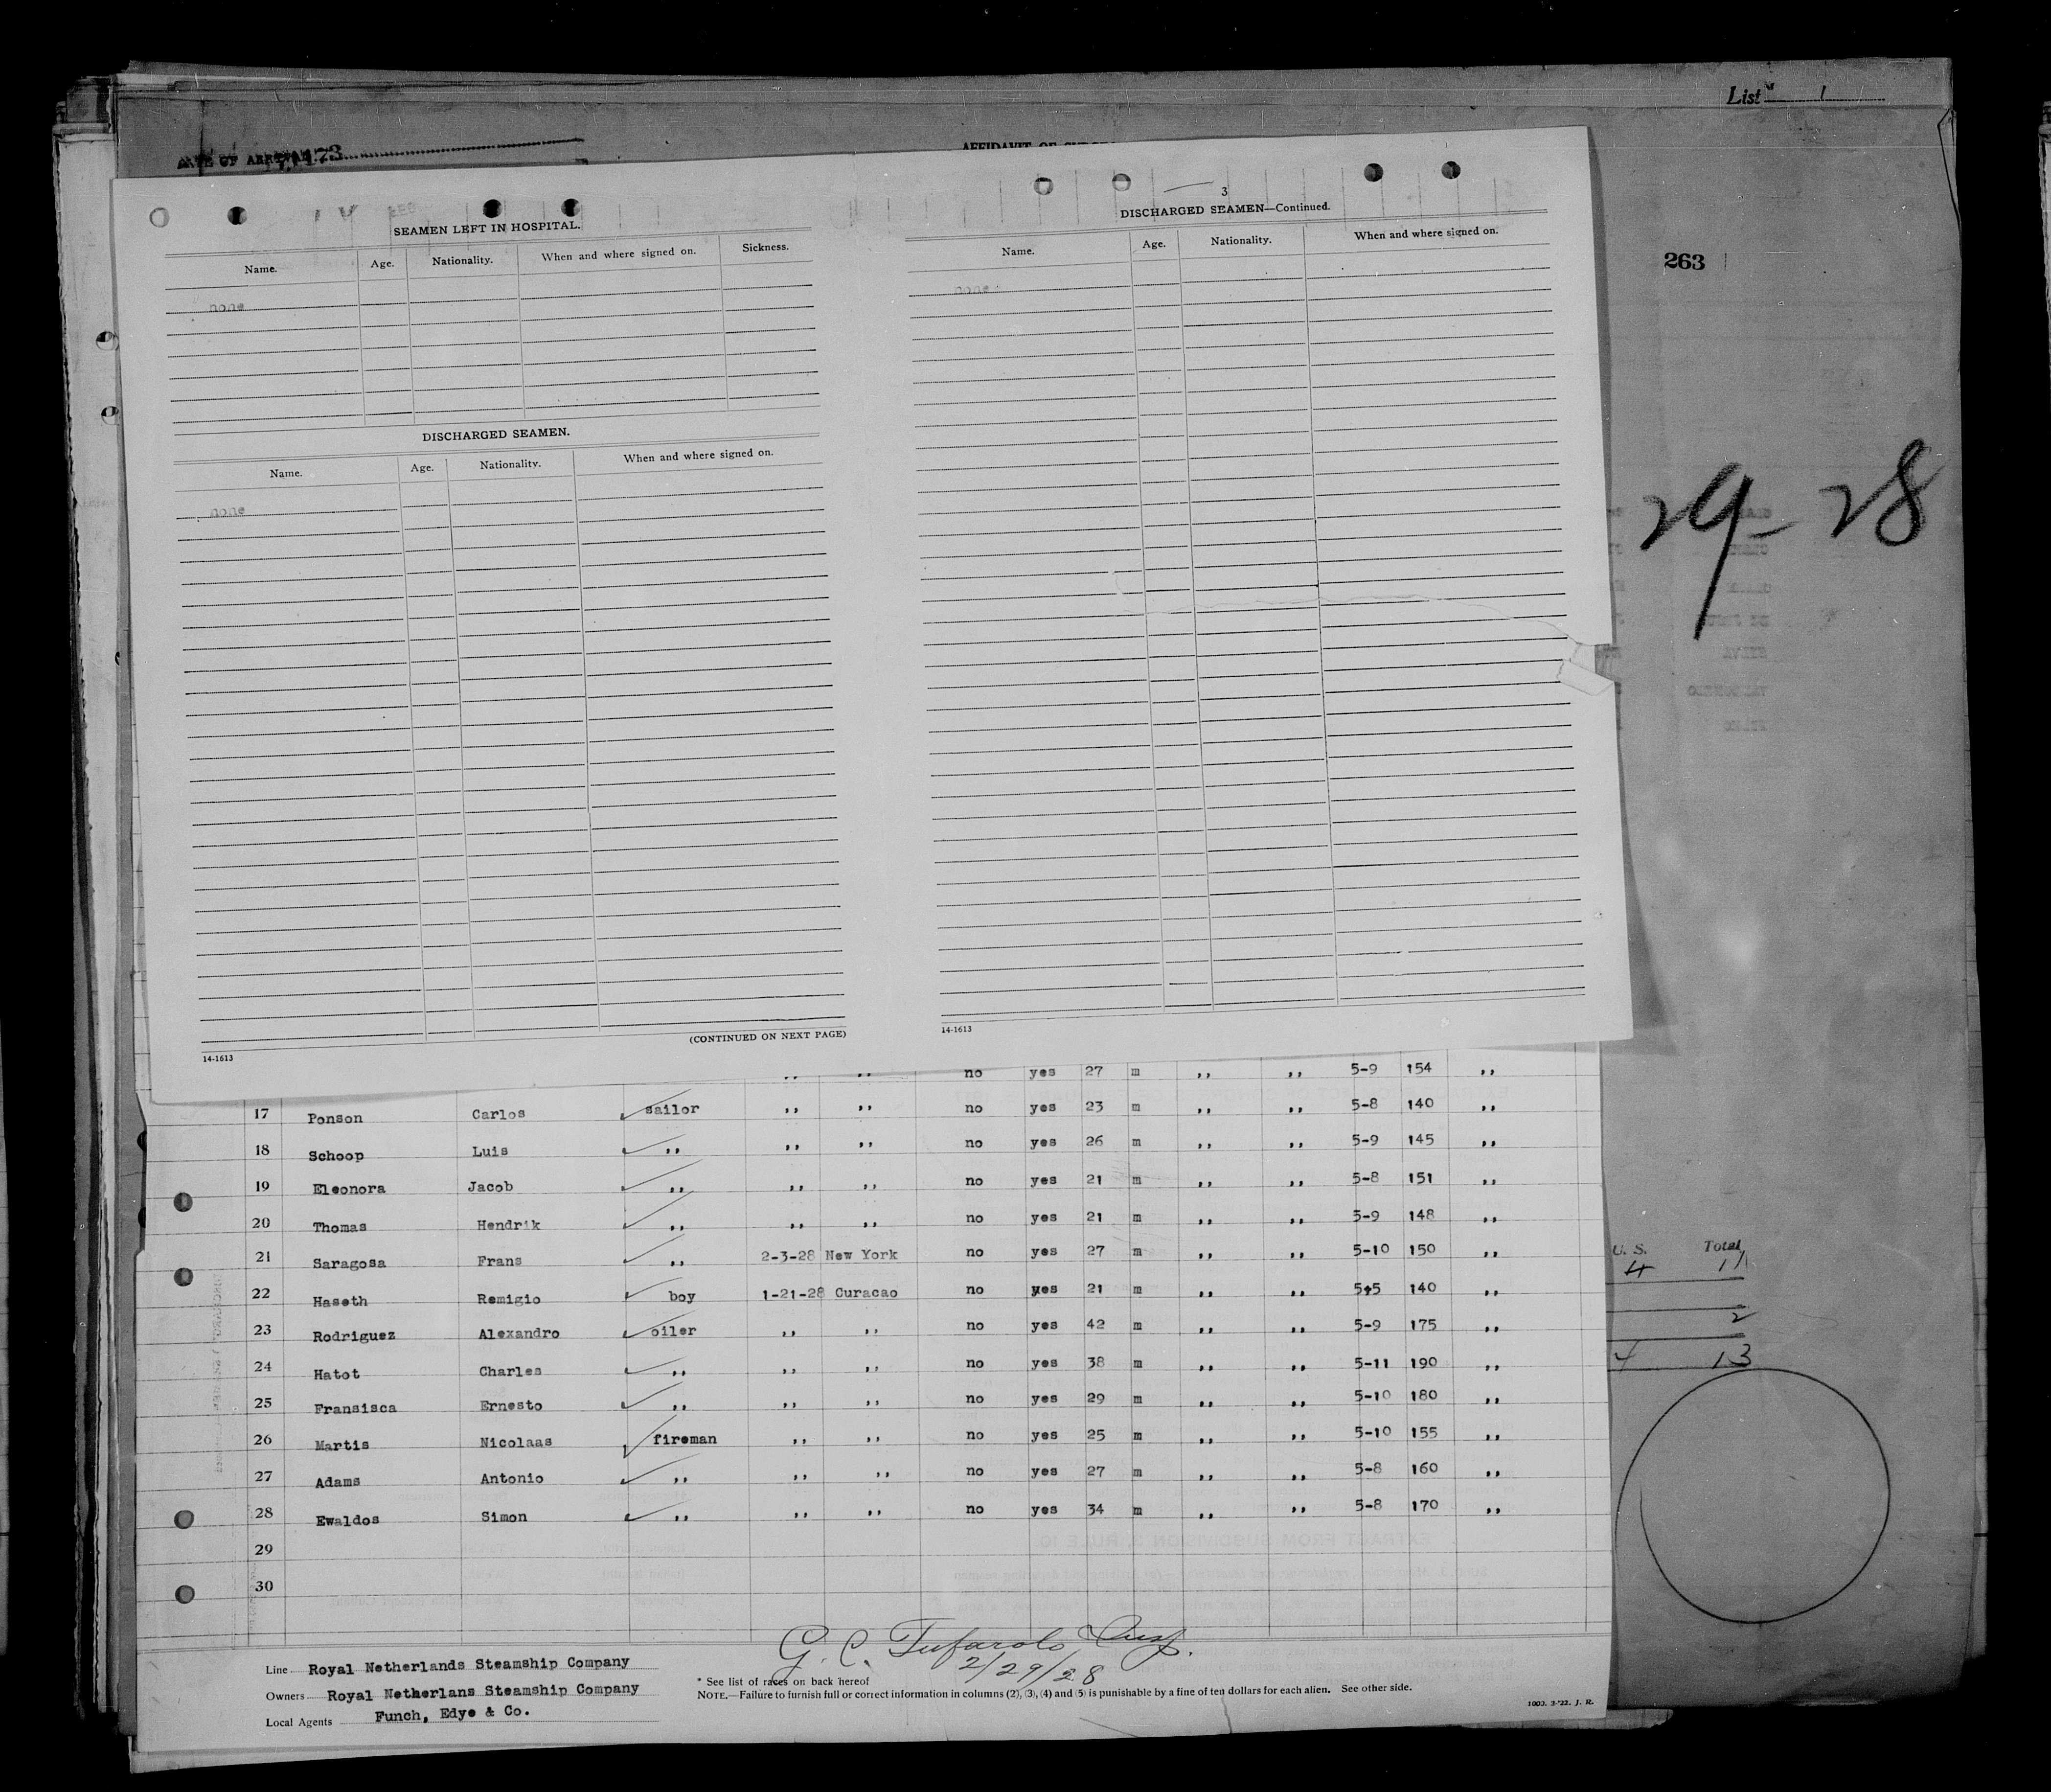 List 1
DATE OF ARRIVAL
173
263
29-28
SEAMEN LEFT IN HOSPITAL.
Name. Age. Nationality. When and where signed on. Sickness.
none
DISCHARGED SEAMEN.
Name. Age. Nationality. When and where signed on.
none
(CONTINUED ON NEXT PAGE)
14-1613
3
DISCHARGED SEAMEN—Continued.
Name. Age. Nationality. When and where signed on.
none
14-1613
,, ,, no yes 27 m ,, ,, 5-9 154 ,,
17 Ponson Carlos sailor ,, ,, no yes 23 m ,, ,, 5-8 140 ,,
18 Schoop Luis ,, ,, ,, no yes 26 m ,, ,, 5-9 145 ,,
19 Eleonora Jacob ,, ,, ,, no yes 21 m ,, ,, 5-8 151 ,,
20 Thomas Hendrik ,, ,, ,, no yes 21 m ,, ,, 5-9 148 ,,
21 Saragosa Frans ,, 2-3-28 New York no yes 27 m ,, ,, 5-10 150 ,,
22 Haseth Remigio boy 1-21-28 Curacao no yes 21 m ,, ,, 5+5 140 ,,
23 Rodriguez Alexandro oiler ,, ,, no yes 42 m ,, ,, 5-9 175 ,,
24 Hatot Charles ,, ,, ,, no yes 38 m ,, ,, 5-11 190 ,,
25 Fransisca Ernesto ,, ,, ,, no yes 29 m ,, ,, 5-10 180 ,,
26 Martis Nicolaas fireman ,, ,, no yes 25 m ,, ,, 5-10 155 ,,
27 Adams Antonio ,, ,, ,, no yes 27 m ,, ,, 5-8 160 ,,
28 Ewaldos Simon ,, ,, ,, no yes 34 m ,, ,, 5-8 170 ,,
29
30
U. S. Total
4 11
2
4 13
G. C. Tufarolo
2/29/28
Line Royal Netherlands Steamship Company
Owners Royal Netherlans Steamship Company
Local Agents Funch, Edye & Co.
* See list of races on back hereof
NOTE.—Failure to furnish full or correct information in columns (2), (3), (4) and (5) is punishable by a fine of ten dollars for each alien. See other side.
1003. 3-'22. J. R.